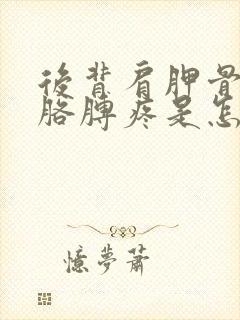 後背肩胛骨
胳膊疼是怎
憶夢蕭